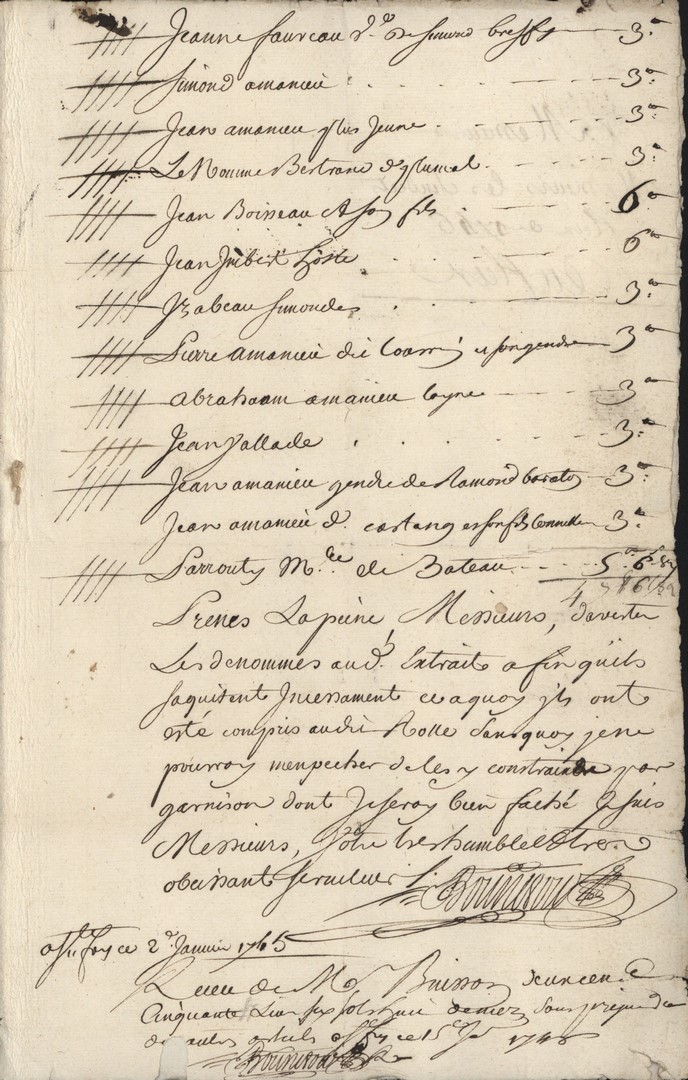 Jeanne faureau d.te de simond 3.#
Simond amanieu . . . 3.#
Jean amanieu plus Jeune . . . 3.#
Le Nomme Bertrand 3.#
Jean Boisseau & son fils . . . 6.#
Jean Jnibert hoste . . . 6.#
Jzabeau simondes . . . 3.#
Pierre amanieu dit et son gendre 3.#
abraham amanieu 3.#
Jean Vallade . . . 3.#
Jean amanieu gendre de Ramond 3.#
Jean amanieu d. castang et son fils 3.#
Parrouty M.tre de Bateau . . . 5.# 6.s 8.d
Prenes La peine, Messieurs, daverter
Les denommes aud.t Extrait afin quils
saquitent Jncessament ce aquoy jls ont
esté compris audit Rolle sansquoy je ne
pourray menpecher de les y constraindre par
garnison dont Je seray bien faché Je suis
Messieurs, Votre tres humble et tres
obeissant serviteur
ce 2.e Janvier 1765
Receu de M. Buisson
Cinquante Livres six sols huit deniers sans prejudice
dautres articles ce 15.e